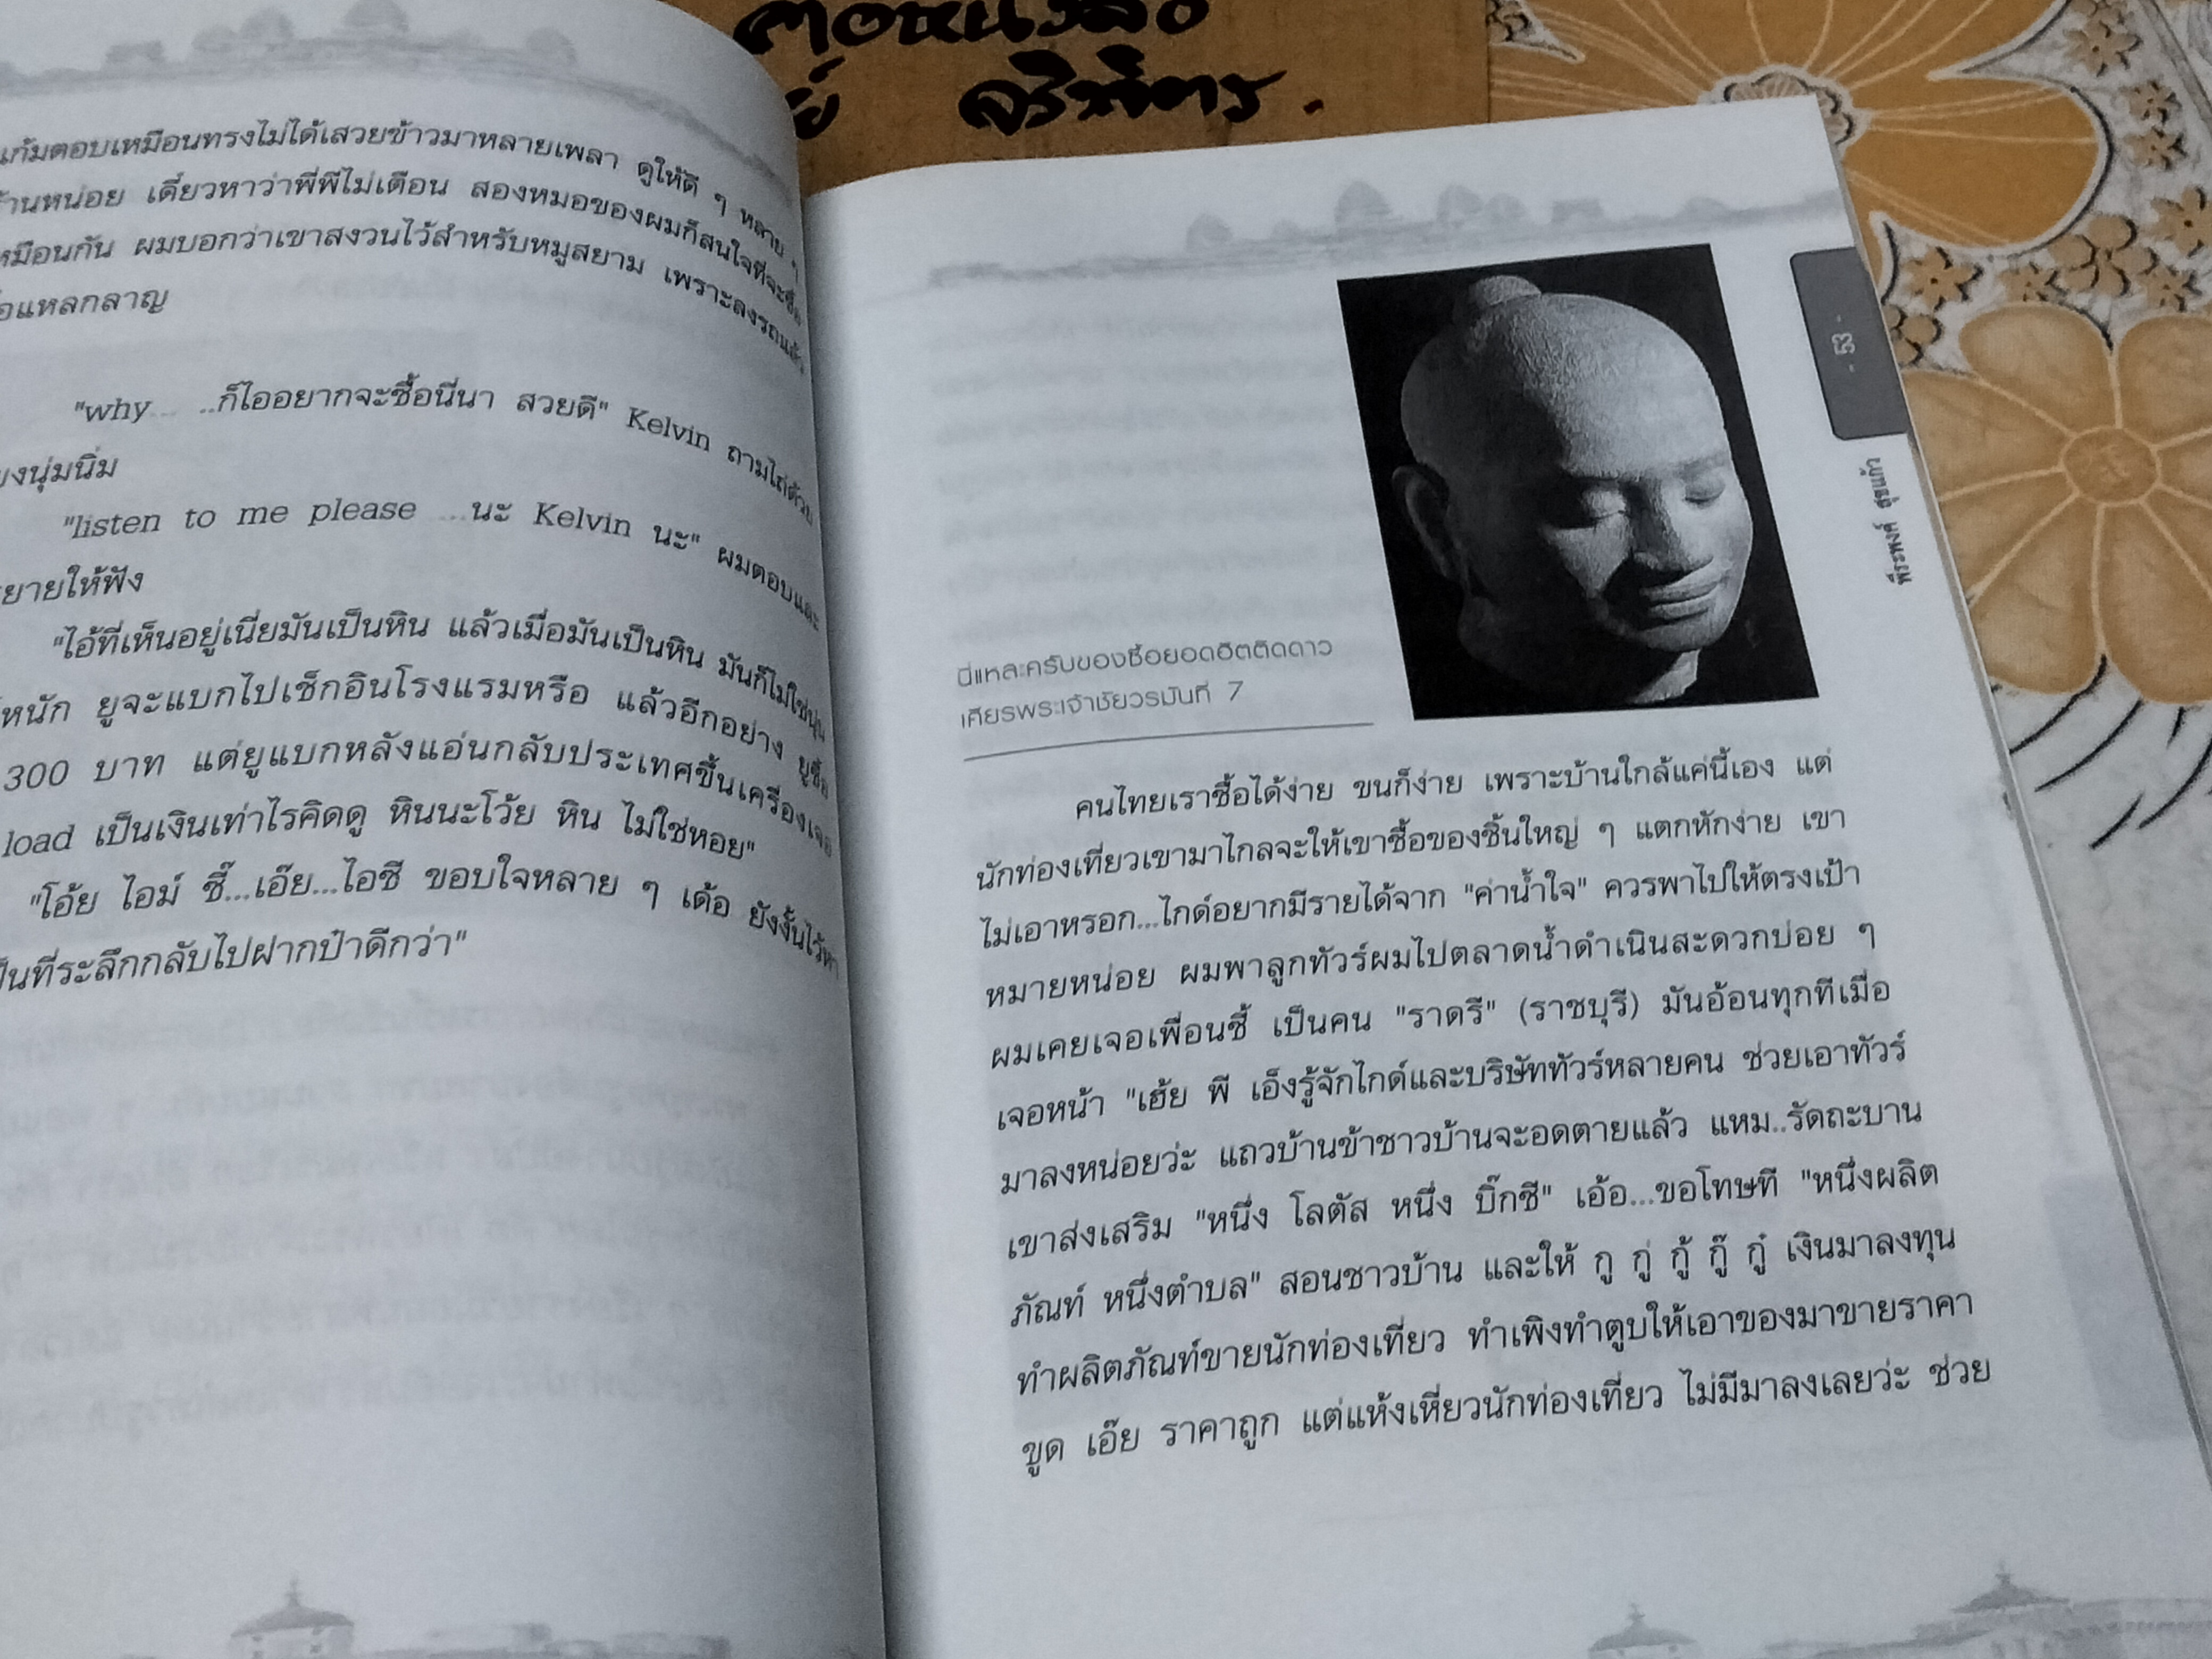 จริพิตร
แก้มตอบเหมือนทรงไม่ได้เสวยข้าวมาหลายเพลา ดูให้ดี ๆ หลาย ๆ
หน่อย เดี๋ยวหาว่าพี่พีไม่เตือน สองหมอของผมก็สนใจที่จะซื้อ
เหมือนกัน ผมบอกว่าเขาสงวนไว้สำหรับหมูสยาม เพราะลงรถแล้ว
แหลกลาญ
"why... ...ก็ไออยากจะซื้อนี่นา สวยดี" Kelvin ถามไถ่ด้วย
นุ่มนิ่ม
"listen to me please ...นะ Kelvin นะ" ผมตอบและ
ให้ฟัง
"ไอ้ที่เห็นอยู่เนี่ยมันเป็นหิน แล้วเมื่อมันเป็นหิน มันก็ไม่ใช่นุ่น
หนัก ยูจะแบกไปเช็กอินโรงแรมหรือ แล้วอีกอย่าง ยูซื้อ
300 บาท แต่ยูแบกหลังแอ่นกลับประเทศขึ้นเครื่องเจอ
load เป็นเงินเท่าไรคิดดู หินนะโว้ย หิน ไม่ใช่หอย"
"โอ้ย ไอม์ ซี้...เอ๊ย...ไอซี ขอบใจหลาย ๆ เด้อ ยังงั้นไว้หา
เป็นที่ระลึกกลับไปฝากป๋าดีกว่า"
- 53 -
พีระพงศ์ สุขแก้ว
นี่แหละครับของซื้อยอดฮิตติดดาว
เศียรพระเจ้าชัยวรมันที่ 7
คนไทยเราซื้อได้ง่าย ขนก็ง่าย เพราะบ้านใกล้แค่นี้เอง แต่
นักท่องเที่ยวเขามาไกลจะให้เขาซื้อของชิ้นใหญ่ ๆ แตกหักง่าย เขา
ไม่เอาหรอก...ไกด์อยากมีรายได้จาก "ค่าน้ำใจ" ควรพาไปให้ตรงเป้า
หมายหน่อย ผมพาลูกทัวร์ผมไปตลาดน้ำดำเนินสะดวกบ่อย ๆ
ผมเคยเจอเพื่อนซี้ เป็นคน "ราดรี" (ราชบุรี) มันอ้อนทุกทีเมื่อ
เจอหน้า "เฮ้ย พี เอ็งรู้จักไกด์และบริษัททัวร์หลายคน ช่วยเอาทัวร์
มาลงหน่อยว่ะ แถวบ้านข้าชาวบ้านจะอดตายแล้ว แหม..รัดถะบาน
เขาส่งเสริม "หนึ่ง โลตัส หนึ่ง บิ๊กซี" เอ้อ...ขอโทษที "หนึ่งผลิต
ภัณฑ์ หนึ่งตำบล" สอนชาวบ้าน และให้ กู กู่ กู้ กู๊ กู๋ เงินมาลงทุน
ทำผลิตภัณฑ์ขายนักท่องเที่ยว ทำเพิงทำตูบให้เอาของมาขายราคา
ขูด เอ๊ย ราคาถูก แต่แห้งเหี่ยวนักท่องเที่ยว ไม่มีมาลงเลยว่ะ ช่วย